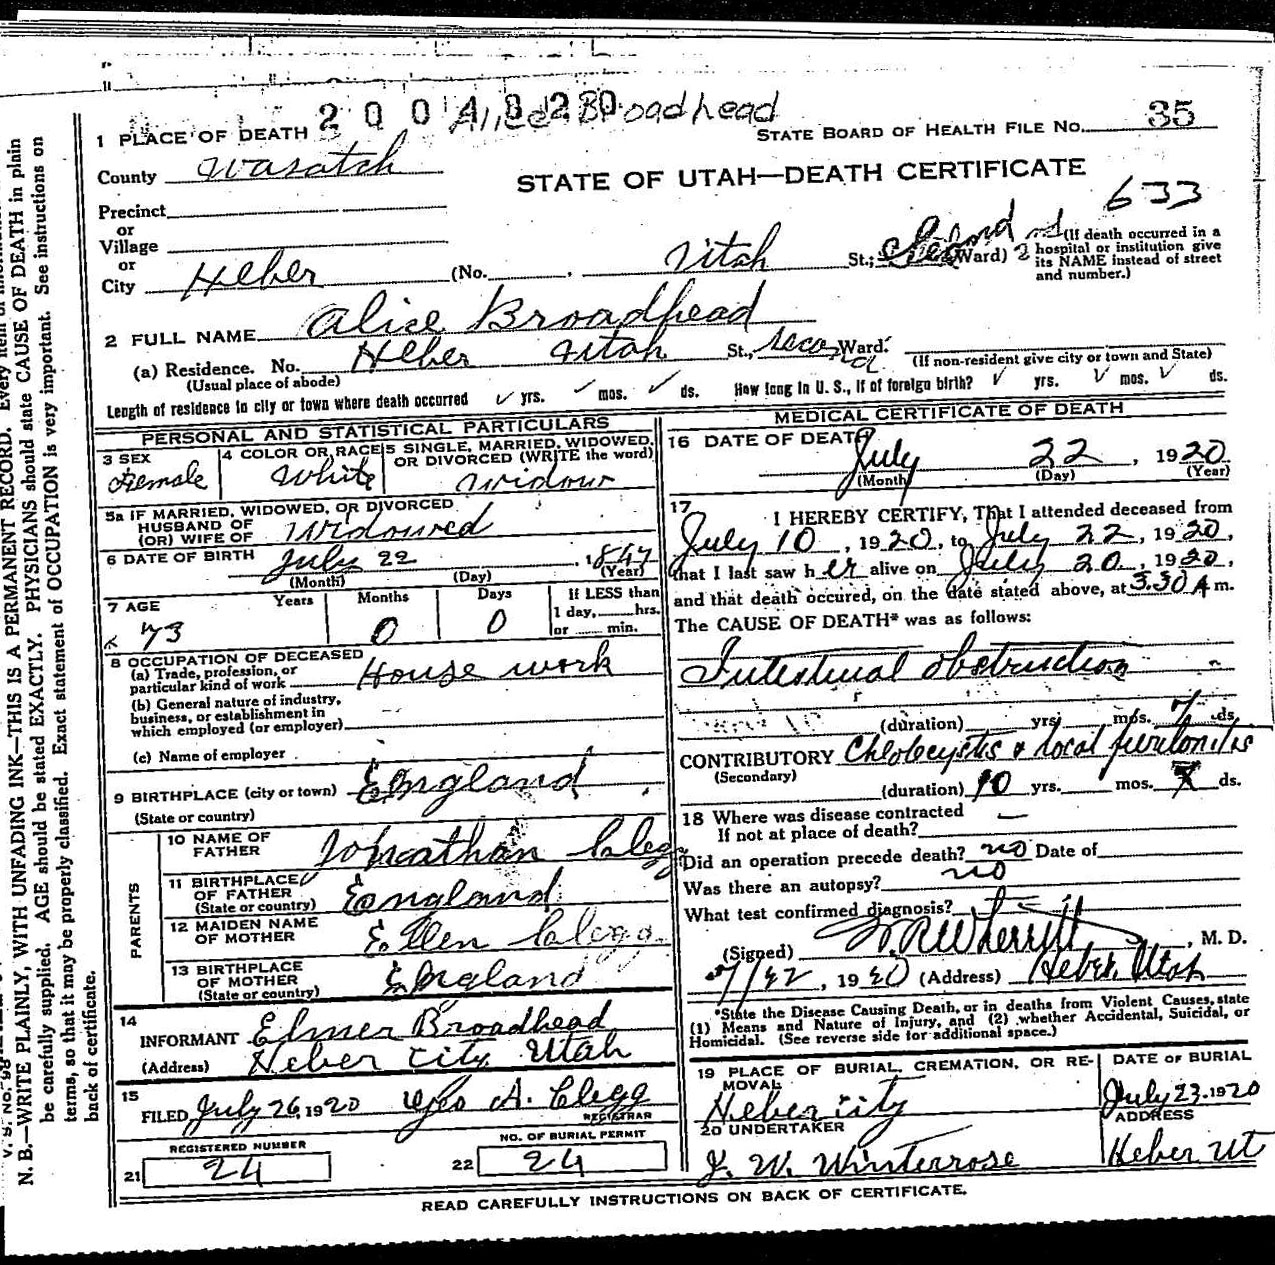 2004320
Alice Broadhead
1 PLACE OF DEATH
STATE BOARD OF HEALTH FILE No. 35
County Wasatch
STATE OF UTAH—DEATH CERTIFICATE
633
Precinct
or
Village
or
City Heber (No. , Utah St.; Second Ward) 2nd
(If death occurred in a hospital or institution give its NAME instead of street and number.)
2 FULL NAME Alice Broadhead
(a) Residence. No. Heber Utah St., Second Ward.
(Usual place of abode)
(If non-resident give city or town and State)
Length of residence in city or town where death occurred ✓ yrs. ✓ mos. ✓ ds. How long in U. S., if of foreign birth? ✓ yrs. ✓ mos. ✓ ds.
PERSONAL AND STATISTICAL PARTICULARS
3 SEX
Female
4 COLOR OR RACE
White
5 SINGLE, MARRIED, WIDOWED, OR DIVORCED (WRITE the word)
Widow
5a IF MARRIED, WIDOWED, OR DIVORCED
HUSBAND OF
(OR) WIFE OF Widowed
6 DATE OF BIRTH July 22 , 1847
(Month) (Day) (Year)
7 AGE Years Months Days If LESS than
1 day, hrs.
or min.
73 0 0
8 OCCUPATION OF DECEASED
(a) Trade, profession, or
particular kind of work House work
(b) General nature of industry,
business, or establishment in
which employed (or employer)
(c) Name of employer
9 BIRTHPLACE (city or town) England
(State or country)
PARENTS
10 NAME OF FATHER Jonathan Clegg
11 BIRTHPLACE OF FATHER England
(State or country)
12 MAIDEN NAME OF MOTHER Ellen Clegg
13 BIRTHPLACE OF MOTHER England
(State or country)
14
INFORMANT Elmer Broadhead
(Address) Heber City Utah
15
FILED July 26, 1920 Geo A. Clegg
REGISTRAR
REGISTERED NUMBER
21 24
NO. OF BURIAL PERMIT
22 24
MEDICAL CERTIFICATE OF DEATH
16 DATE OF DEATH
July 22, 1920
(Month) (Day) (Year)
17
I HEREBY CERTIFY, That I attended deceased from
July 10, 1920, to July 22, 1920,
that I last saw her alive on July 20, 1920,
and that death occured, on the date stated above, at 3.30 A m.
The CAUSE OF DEATH* was as follows:
Intestinal obstruction
(duration) yrs. mos. 7 ds.
CONTRIBUTORY Cholocystis & local peritonitis
(Secondary)
(duration) 10 yrs. mos. ds.
18 Where was disease contracted
If not at place of death? —
Did an operation precede death? no Date of
Was there an autopsy? no
What test confirmed diagnosis?
(Signed) W.R. Wherritt, M. D.
7/22, 1920 (Address) Heber, Utah
*State the Disease Causing Death, or in deaths from Violent Causes, state
(1) Means and Nature of Injury, and (2) whether Accidental, Suicidal, or
Homicidal. (See reverse side for additional space.)
19 PLACE OF BURIAL, CREMATION, OR REMOVAL
Heber city
DATE OF BURIAL
July 23, 1920
20 UNDERTAKER
J. W. Winterrose
ADDRESS
Heber Ut
READ CAREFULLY INSTRUCTIONS ON BACK OF CERTIFICATE.
N. B.—WRITE PLAINLY, WITH UNFADING INK—THIS IS A PERMANENT RECORD. Every item of
be carefully supplied. AGE should be stated EXACTLY. PHYSICIANS should state CAUSE OF DEATH in plain
terms, so that it may be properly classified. Exact statement of OCCUPATION is very important. See instructions on
back of certificate.